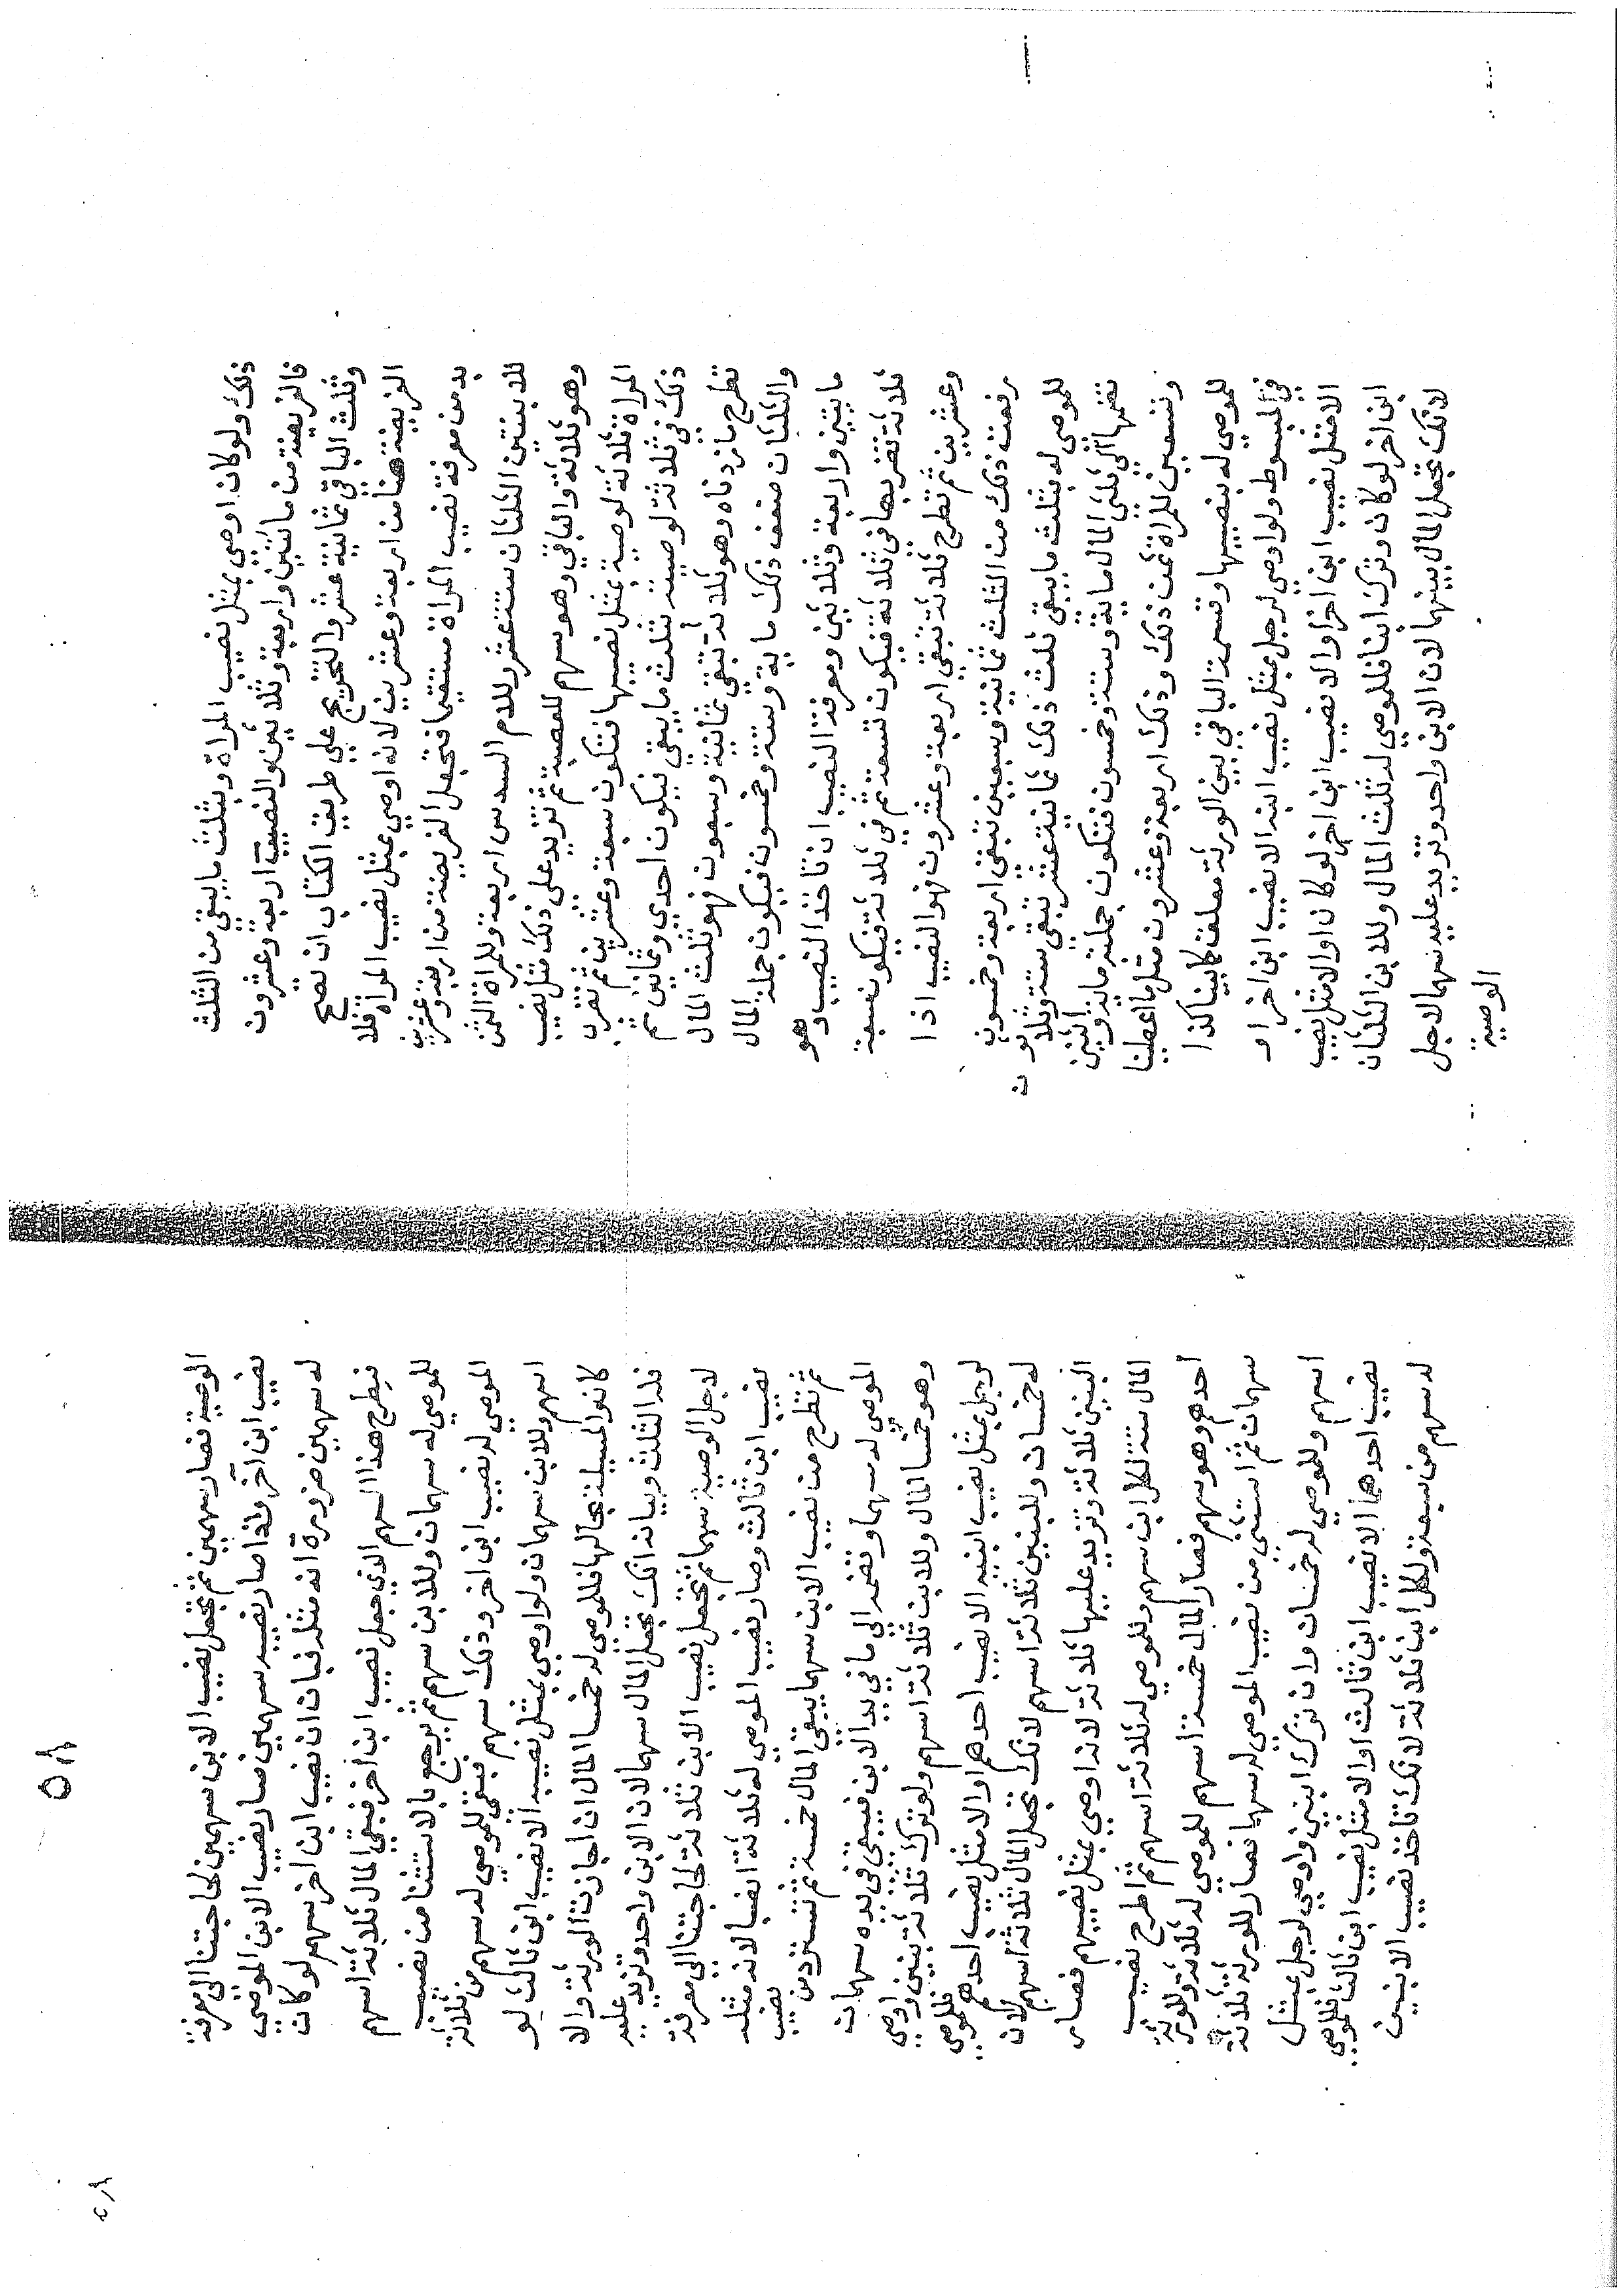 ذلك ولو كان اوصي بمثل نصيب المراة وبثلث ما يبقي من الثلث
فالفريضة من مائتين واربعة وثلاثين والنصيب اربعة وعشرون
وثلث الباقي ثمانية عشر والتخريج علي طريق الكتاب ان تصحح
الفريضة هنا من اربعة وعشرين لانه اوصي بمثل نصيب المراة فلا
بد من معرفة نصيب المراة مستقيما فتجعل الفريضة من اربعة وعشرين
للابنتين الثلثان ستة عشر وللام السدس اربعة وللمراة الثمن
وهو ثلاثة والباقي وهو سهم للعصبة ثم تزيد علي ذلك مثل نصيب
المراة ثلاثة لوصية بمثل نصيبها فتكون سبعة وعشرين ثم تضرب
ذلك في ثلاثة لوصيته بثلث ما يبقي فيكون احدي وثمانين ثم
تطرح ما زدناه وهو ثلاثة تبقي ثمانية وسبعون فهو ثلث المال
والثلثان ضعف ذلك ماية وستة وخمسون فيكون جملة المال
مايتين واربعة وثلاثين ومعرفة النصيب ان تاخذ النصيب وهو
ثلاثة تضربها في ثلاثة فيكون تسعة ثم في ثلاثة فيكون سبعة
وعشرين ثم تطرح ثلاثة تبقي اربعة وعشرون فهو النصيب اذا
رفعت ذلك من الثلث ثمانية وسبعين تبقي اربعة وخمسون
للموصي له بثلث ما يبقي ثلث ذلك ثمانية عشر تبقي ستة وثلاثون
تضمها الي ثلثي المال ماية وستة وخمسون فتكون جملته ماية واثنين
وتسعين للمراة ثمن ذلك وذلك اربعة وعشرون مثل ما اعطينا
للموصي له بنصيبها وقسمة الباقي بين الورثة معلقة كما بينا كذا
في المبسوط ولو اوصي لرجل بمثل نصيب ابنه الا نصيب ابن اخر او
الا مثل نصيب ابن اخر او الا نصيب ابن اخر لو كان او الا مثل نصيب
ابن اخر لو كان وترك ابنا فللموصي له ثلث المال وللابن الثلثان
لانك تجعل المال بينهما لان الابن واحد وتزيد عليه سهما لاجل
الوصية
٥٨
الوصية فصار سهمين ثم تجعل نصيب الابن سهمين لحاجتنا الي معرفة
نصيب ابن آخر واذا صار نصيبه سهمين صار نصيب الابن الموصي
له سهمين ضرورة انه مثله فبان ان نصيب ابن اخر سهم لو كان
فيطرح هذا السهم الذي جعل نصيب ابن اخر فيبقي المال ثلاثة اسهم
للموصي له سهمان وللابن سهم ثم يرجع بالاستثنا من نصيب
الموصي له نصيب ابن اخر وذلك سهم فبقي للموصي له سهم من ثلاثة
اسهم وللابن سهمان ولو اوصي بمثل نصيب الا نصيب ابن ثالث لو
كانوا المسيلة بحالها فللموصي له خمسا المال ان اجازت الورثة والا
فله الثلث وبيانه انك تجعل المال سهما لان الابن واحد وتزيد عليه
لاجل الوصية سهما ثم تجعل نصيب الابن ثلاثة لحاجتنا الي معرفة
نصيب ابن ثالث وصار نصيب الموصي له ثلاثة ايضا لانه مثله
ثم تطرح من نصيب الابن سهما يبقي المال خمسة ثم تسترد من نصيب
الموصي له سهما وتضمه الي ما في يد الابن فيبقي في يده سهمان
وهو خمسا المال وللابن ثلاثة اسهم ولو ترك ثلاثة بنين واوصي
لرجل بمثل نصيب ابنيه الا نصيب احدهم او الا مثل نصيب احدهم فللموصي
له خمسان وللبنين ثلاثة اسهم لانك تجعل المال ثلاثة اسهم لان
البنين ثلاثة وتزيد عليها ثلاثة لانه اوصي بمثل نصيبهم فصار
المال ستة لكل ابن سهم وللموصي له ثلاثة اسهم ثم اطرح نصيب
احدهم وهو سهم فصار المال خمسة اسهم للموصي له ثلاثة وللورثة
سهمان ثم استثني من نصيب الموصي له سهما فصار للورثة ثلاثة
اسهم وللموصي له خمسان وان ترك ابنين واوصي لرجل بمثل
نصيب احدهما الا نصيب ابن ثالث او الا مثل نصيب ابن ثالث فللموصي
له سهم من سبعة ولكل ابن ثلاثة لانك تاخذ نصيب الابنين